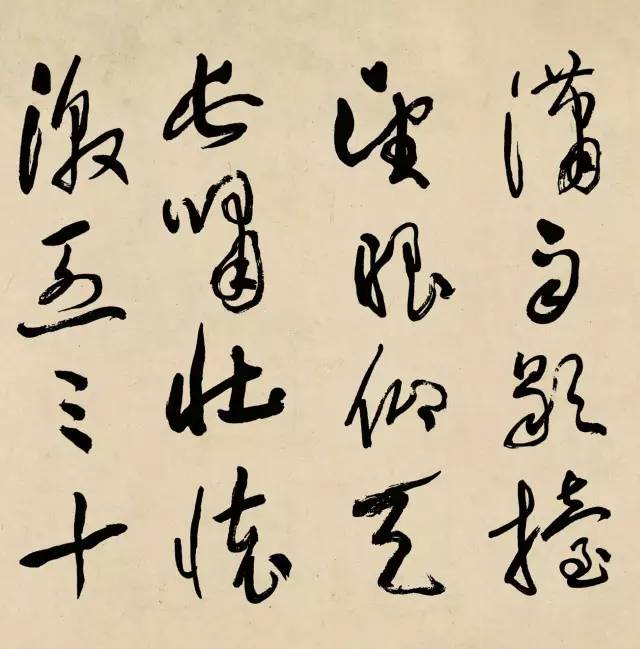 潇雨歇擡
望眼仰天
长啸壮怀
激烈三十